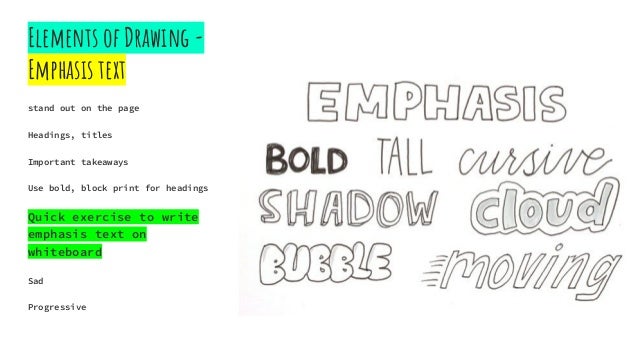 Elements of Drawing -
Emphasis text
stand out on the page
Headings, titles
Important takeaways
Use bold, block print for headings
Quick exercise to write
emphasis text on
whiteboard
Sad
Progressive
EMPHASIS
BOLD TALL cursive
SHADOW cloud
BUBBLE moving